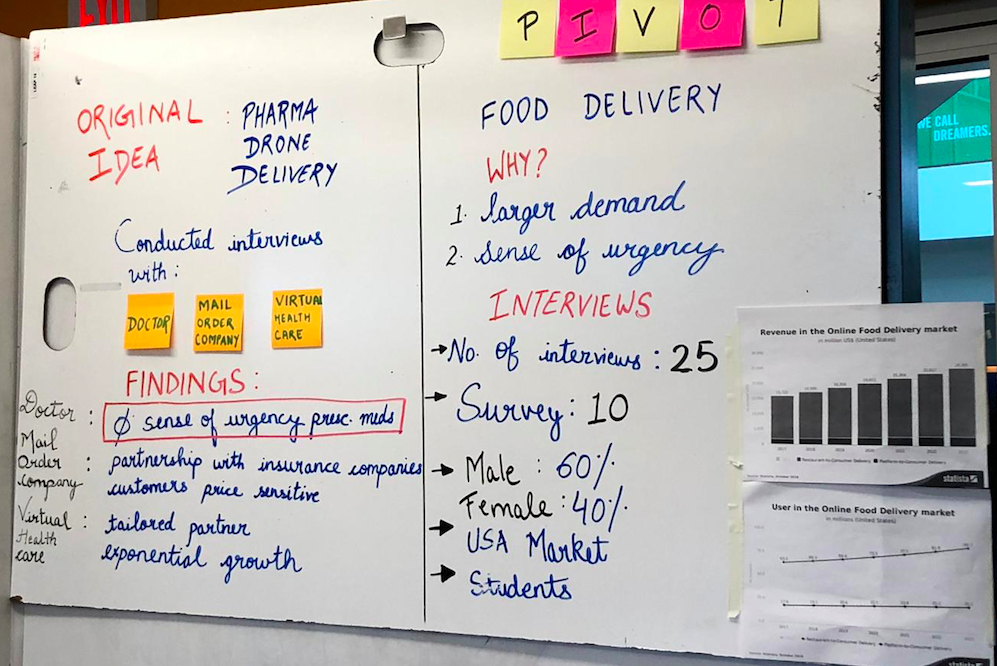 EXIT
P I V O T
ORIGINAL : PHARMA
IDEA DRONE
DELIVERY
Conducted interviews
with :
DOCTOR
MAIL
ORDER
COMPANY
VIRTUAL
HEALTH
CARE
FINDINGS :
Doctor : ∅ sense of urgency presc. meds
Mail
Order
Company : partnership with insurance companies
customers price sensitive
Virtual
Health
care : tailored partner
exponential growth
FOOD DELIVERY
WHY?
1. larger demand
2. sense of urgency
INTERVIEWS
→ No. of interviews : 25
→ Survey : 10
→ Male : 60%
Female : 40%
→ USA Market
→ Students
WE CALL
DREAMERS.
Revenue in the Online Food Delivery market
in million US$ (United States)
Restaurant-to-Consumer Delivery Platform-to-Consumer Delivery
statista
User in the Online Food Delivery market
in millions (United States)
Restaurant-to-Consumer Delivery Platform-to-Consumer Delivery
statista